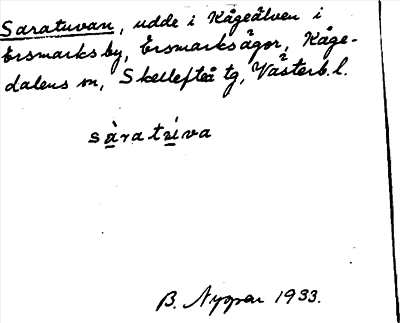 Saratuvan, udde i Kågeälven i
Ersmarks by, Ersmarksågor, Kåge-
dalens sn, Skellefteå tg, Västerb. l.
B. Nygren 1933.